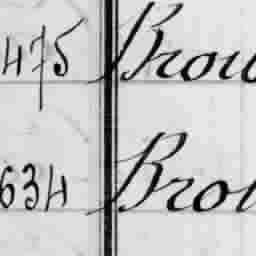 475 Brou
634 Brot